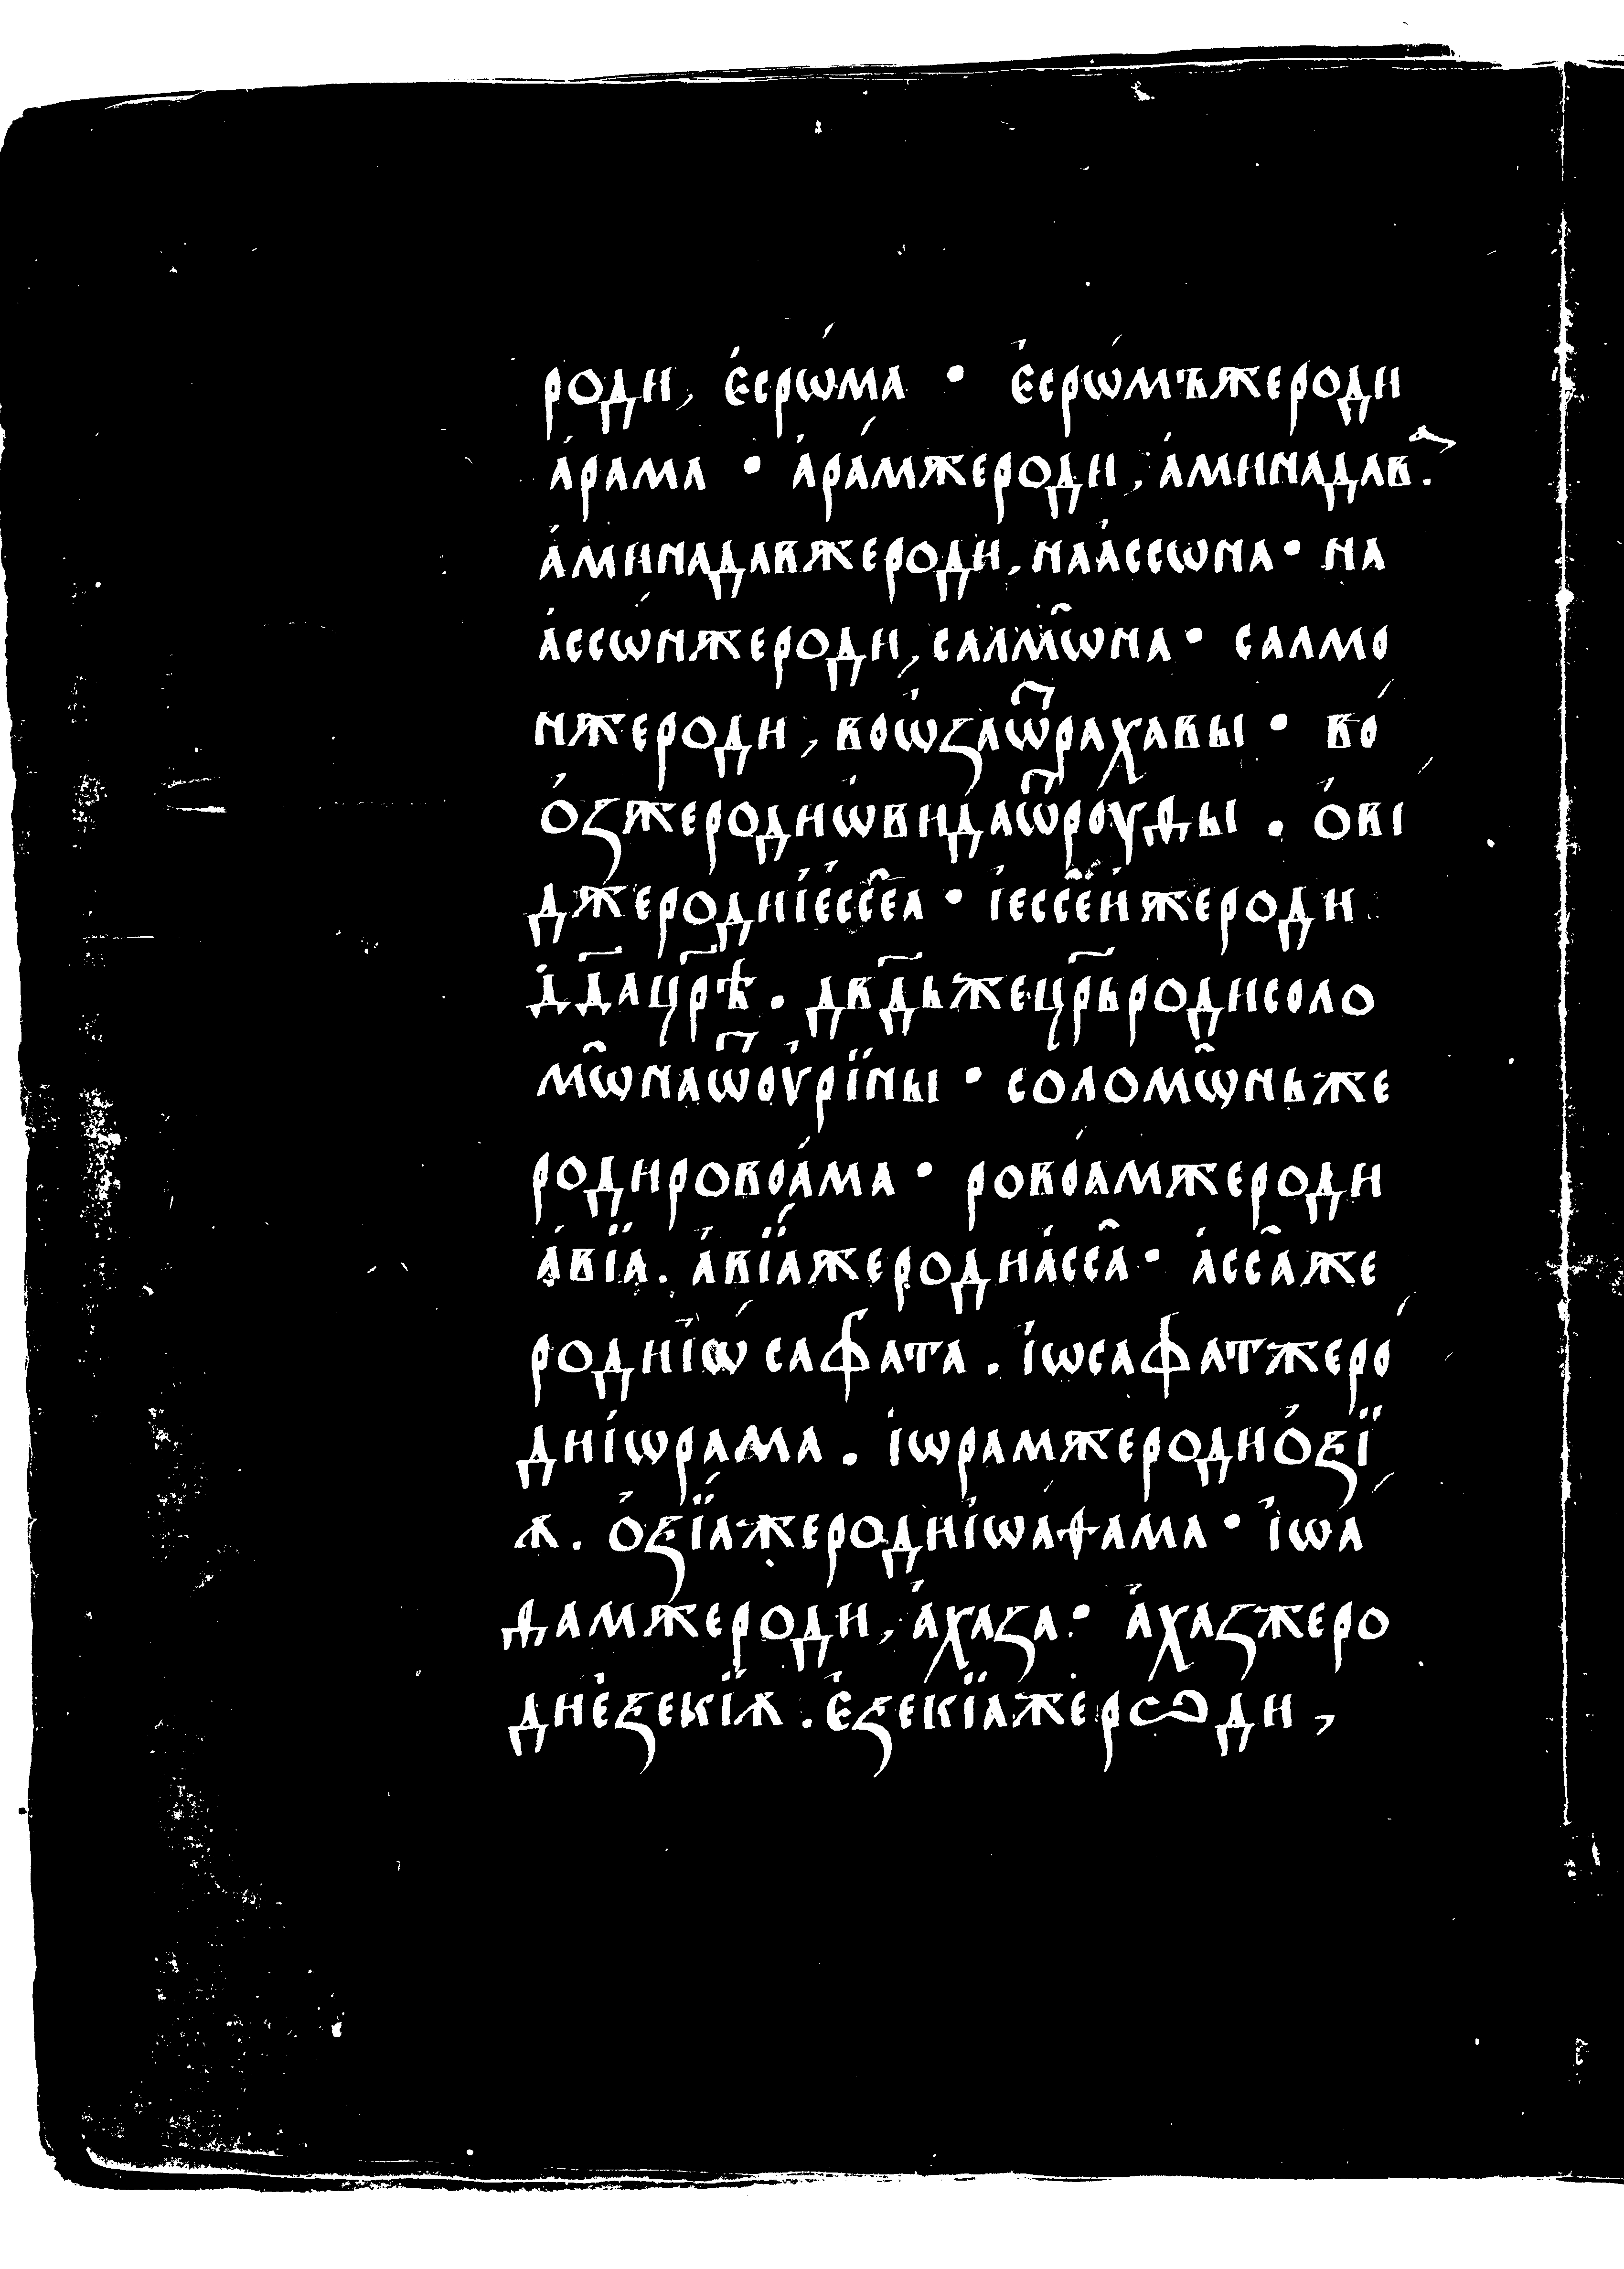 роди, є҆срѡ́ма · є҆срѡ́мъжероди
а҆рама · а҆ра́мжероди, а҆минадав.
а҆минадавжероди, наа҆ссѡна · на
а҆ссѡнжероди, салмѡ̑на · салмо
нжероди, воѡ҆ꙁаѿрахавы · во
о҆ꙁжеродиѡ҆видаѿроуѳы . о҆ві
джеродиі҆е҆ссе̑а · і҆ессе̑йжероди
дв҃дацр҃ѣ . двд҃ьжецр҃ьродисоло
мѡ̑наѿоу҆рїины · соломѡ̑ньже
родировоа́ма · ровоа́мжероди
а҆вїа . а҆вїа́жеродиа҆сса̑ · а҆сса̑же
родиі҆ѡсафата . і҆ѡсафатжеро
диі҆ѡрама . і҆ѡрамжеродио҆ꙁї
ѧ . о҆ꙁїа́жеродиі҆ѡаѳама · і҆ѡа
ѳамжероди, а҆хаꙁа · а҆хаꙁжеро
диє҆ꙁекїѧ . є҆ꙁекїажерѡди,